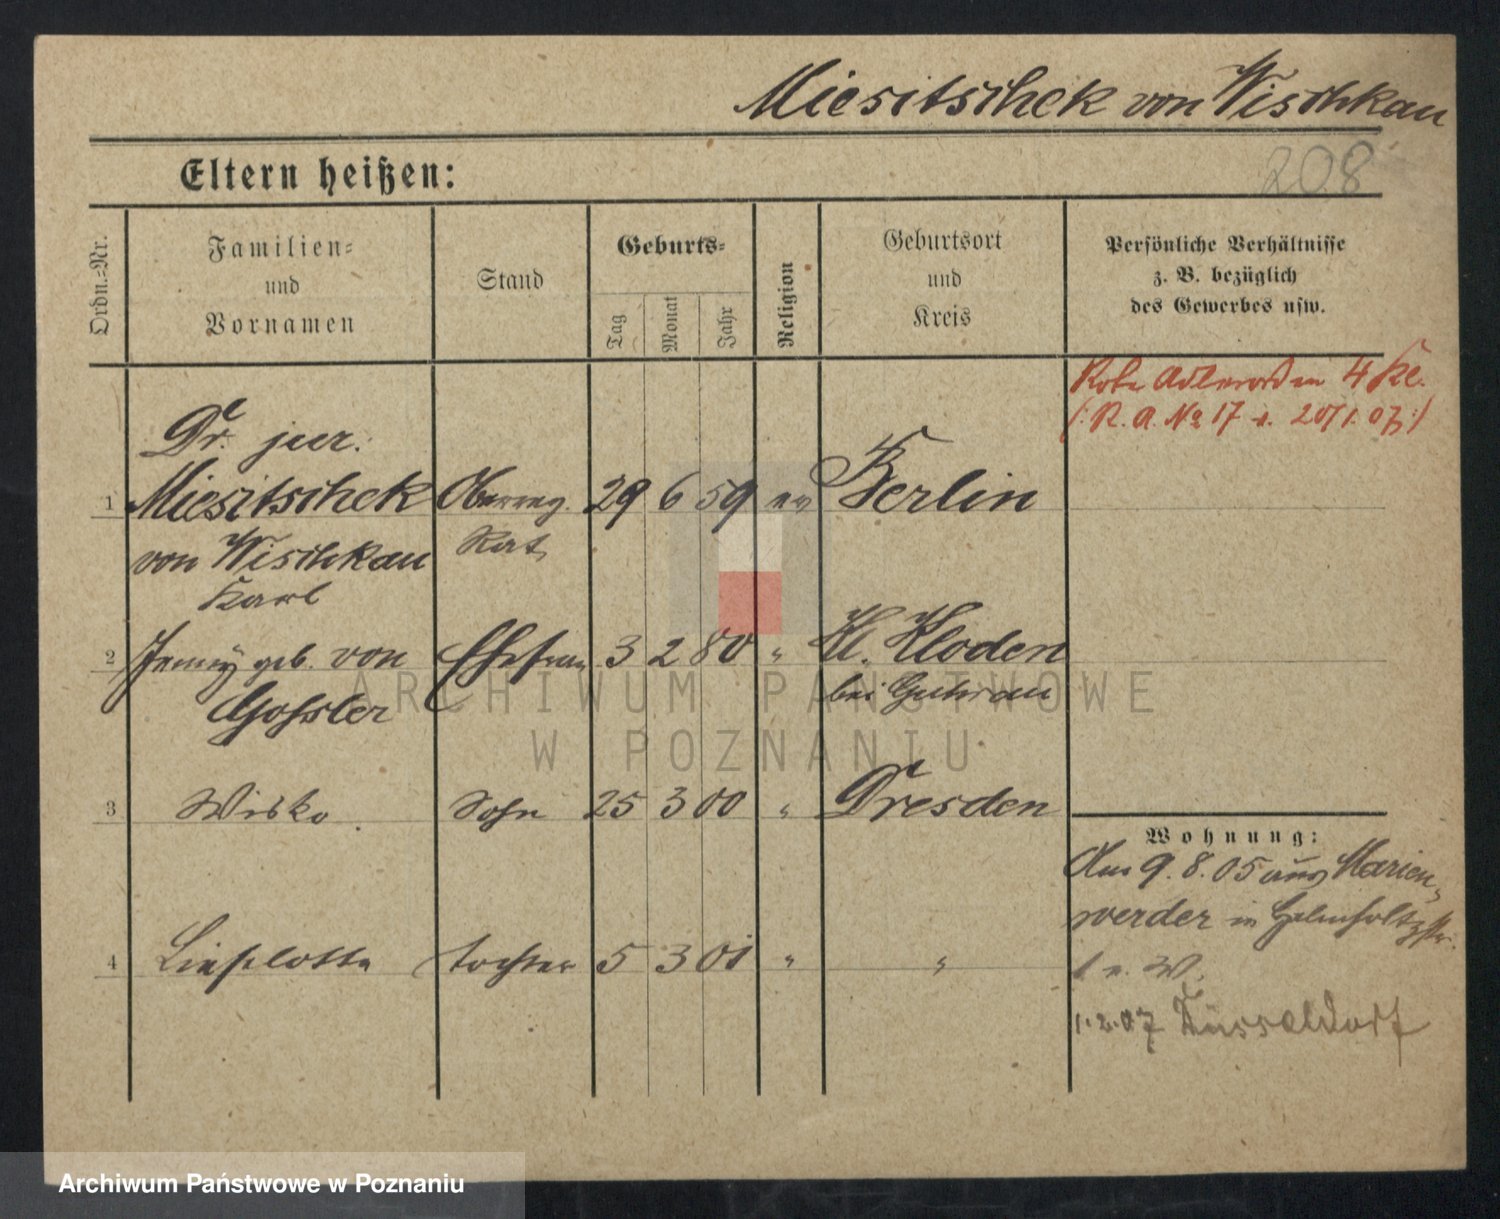 Miesitschek von Wischkau
208
Eltern heißen:
Ordn.-Nr.
Familien-
und
Vornamen
Stand
Geburts-
Tag
Monat
Jahr
Religion
Geburtsort
und
Kreis
Persönliche Verhältnisse
z. B. bezüglich
des Gewerbes usw.
Rote Adlerorden 4 Kl.
(: R. A. No 17 v. 20/1. 07 :)
Dr. jur.
1 Miesitschek Oberreg. 29 6 59 ev Berlin
von Wischkau Rat
Karl
2 Jenny geb. von Ehefrau 3 2 80 " Kl. Kloden
Gossler bei Guhrau
3 Wisko Sohn 25 3 00 " Dresden
Wohnung:
Am 9. 8. 05 aus Marien-
werder in Helmholtzstr.
4 Lieselotte Tochter 5 3 01 " "
1.2.07 Düsseldorf
ARCHIWUM PAŃSTWOWE
W POZNANIU
Archiwum Państwowe w Poznaniu